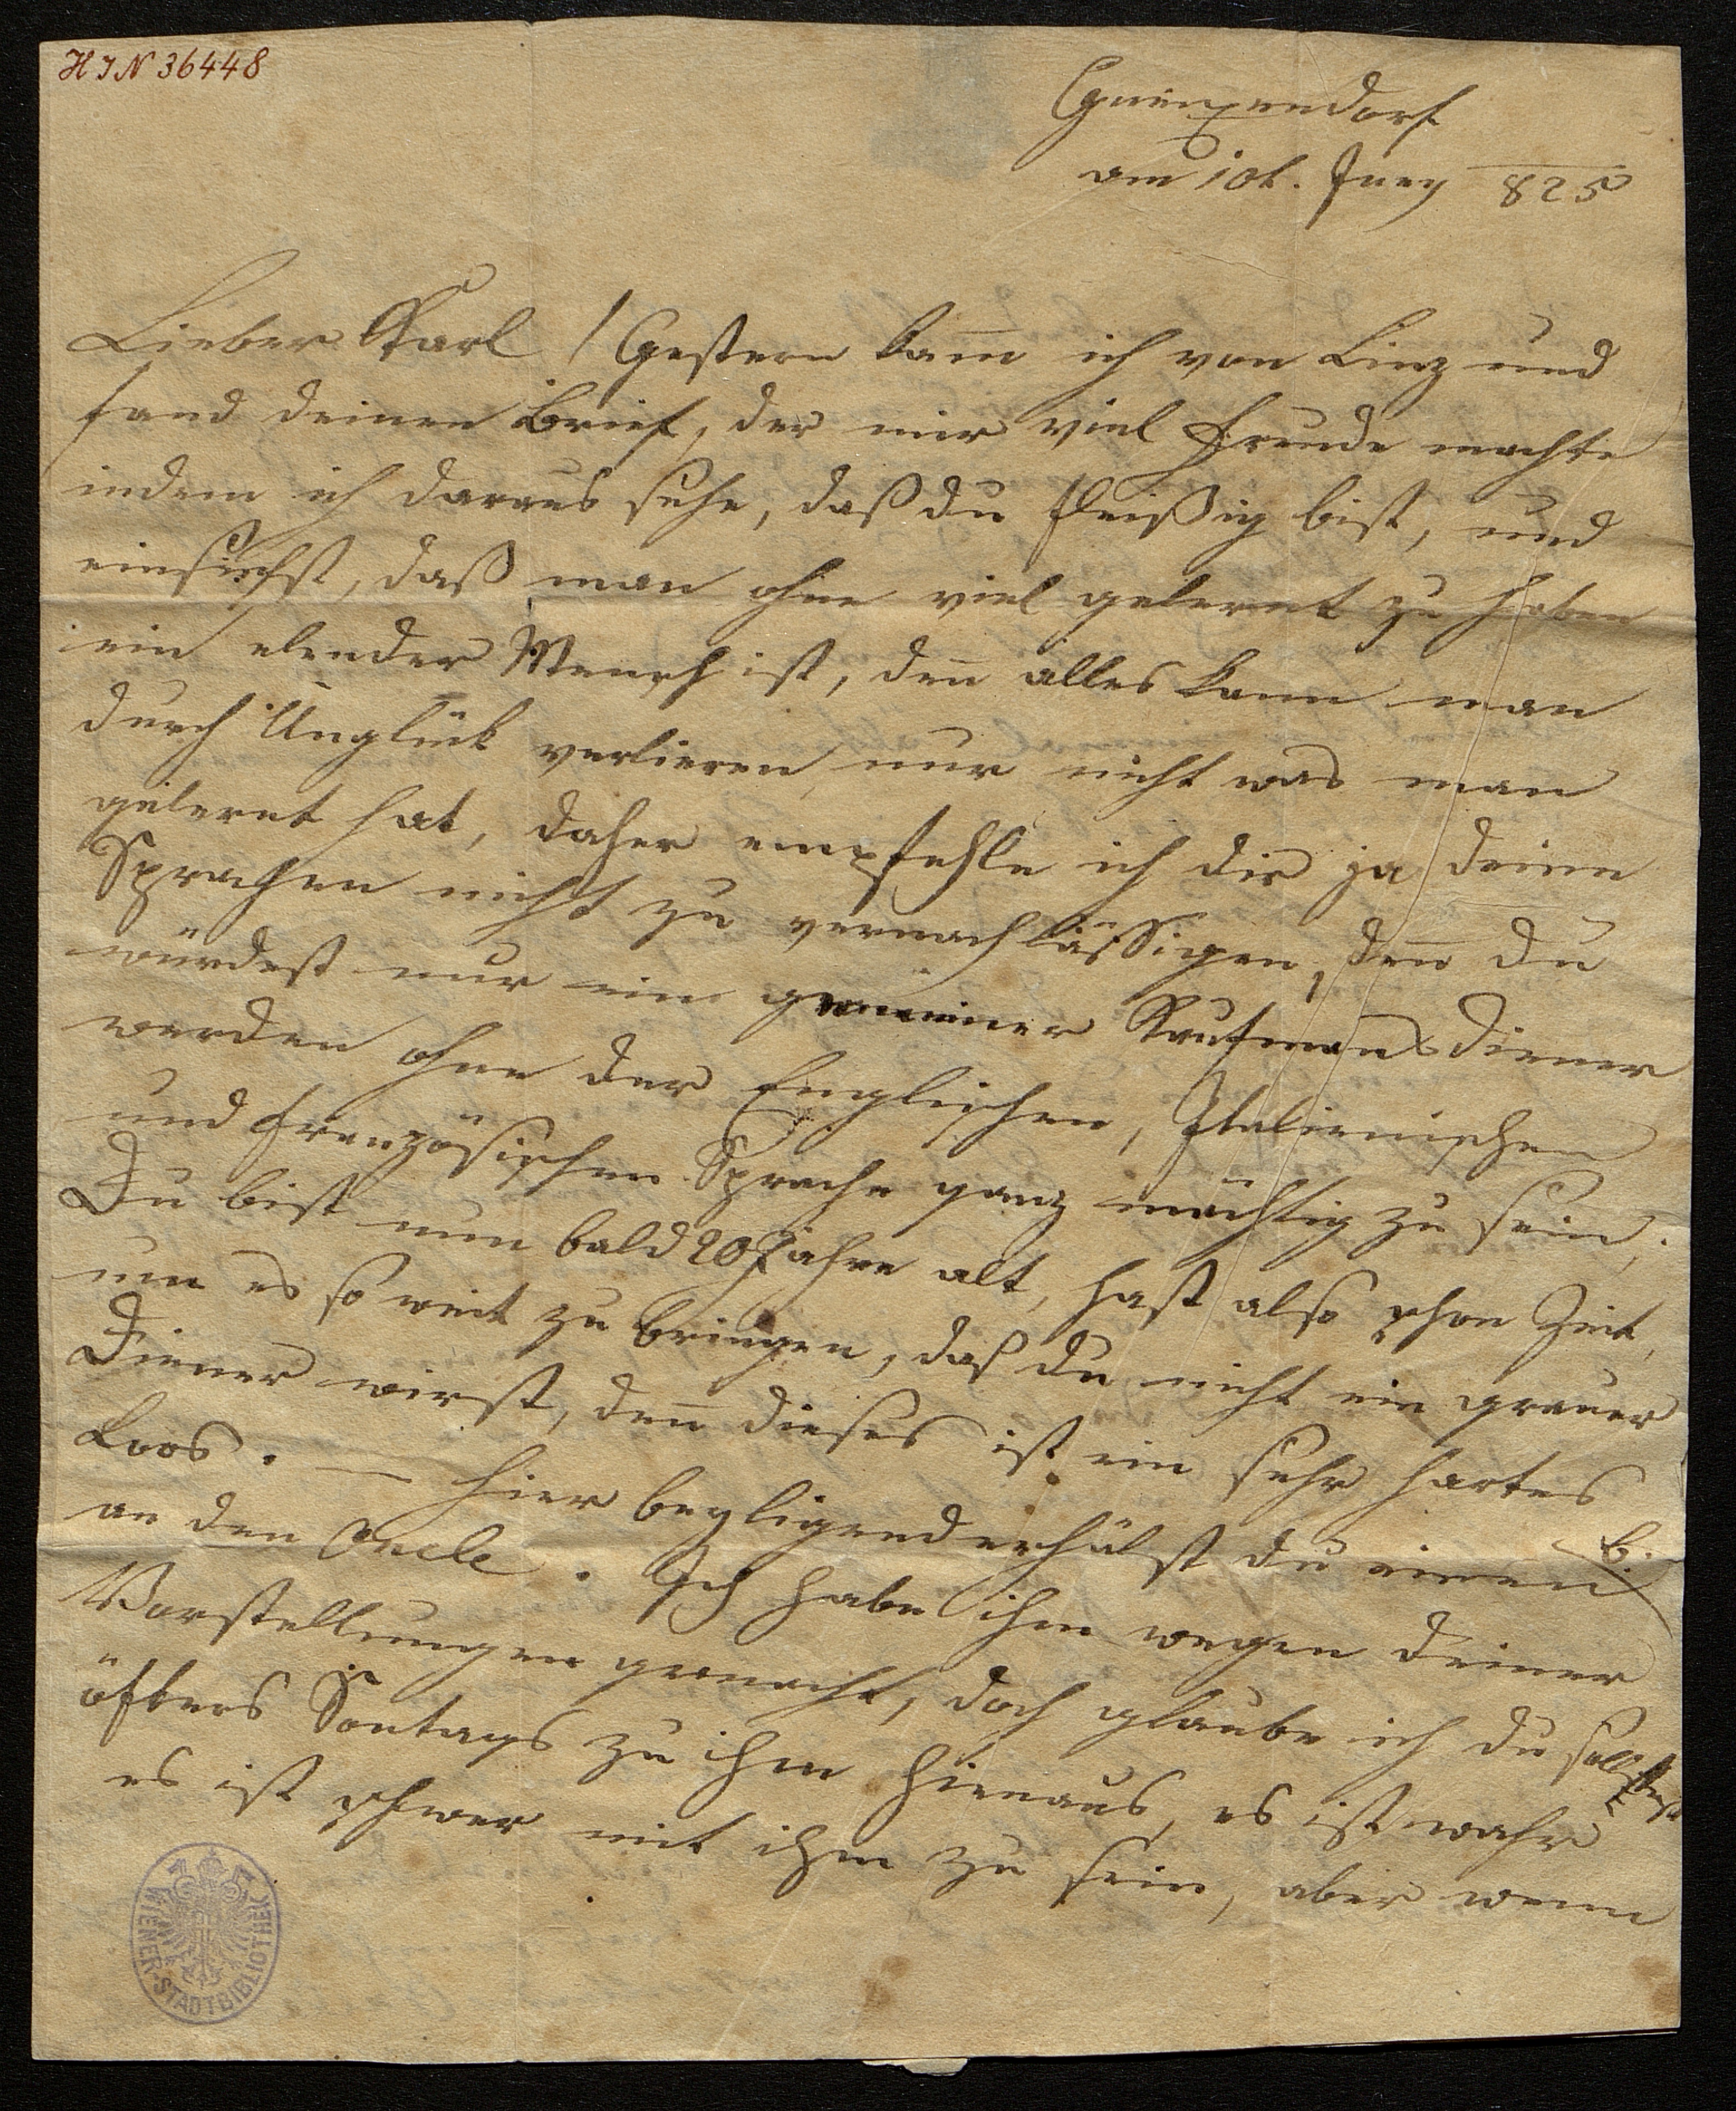 HIN 36448
Gneixendorf
am 10t. Juny 825
Lieber Karl! Gestern kam̄ ich von Linz und
fand deinen Brief, der mir viel Freude machte
indem ich daraus sehe, daß du fleißig bist, und
einsiehst, daß man ohne viel gelernt zu haben
ein elender Mensch ist, den̄ alles kann man
durch Unglück verlieren, nur nicht was man
gelernt hat, daher empfehle ich dir ja deine
Sprachen nicht zu vernachlässigen, den̄ du
würdest nur ein gemeiner Kaufmansdiener
werden ohne der Englischen, Italienischen
und französischen Sprache ganz mächtig zu sein,
Du bist nun bald 20 Jahre alt, hast also schon Zeit,
um es so weit zu bringen, daß du nicht ein grauer
Diener wirst, den̄ dieses ist ein sehr hartes
Loos. — Hier beyligend erhälst du einen B.
an den Oncle. Ich habe ihm wegen deiner
Vorstellungen gemacht, doch glaube ich du sollst
öfters Sontags zu ihm hinaus, es ist wahr
es ist schwer mit ihm zu sein, aber wenn
WIENER-STADTBIBLIOTHEK